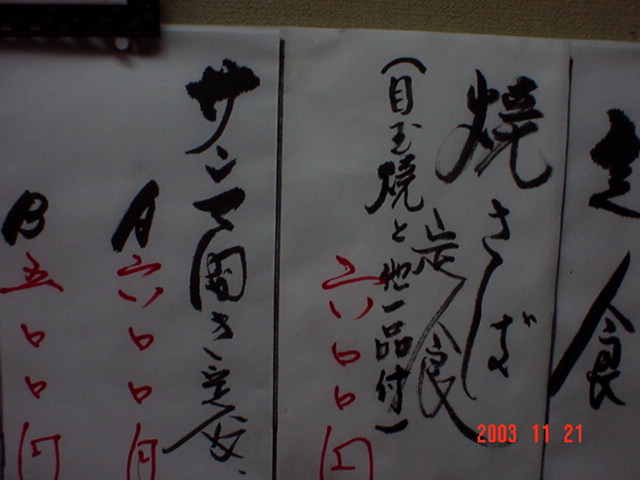 定食
焼さば定食
(目玉焼と他一品付)
六〇〇円
サンマ開き定食
A 六〇〇円
B 五〇〇円
2003 11 21